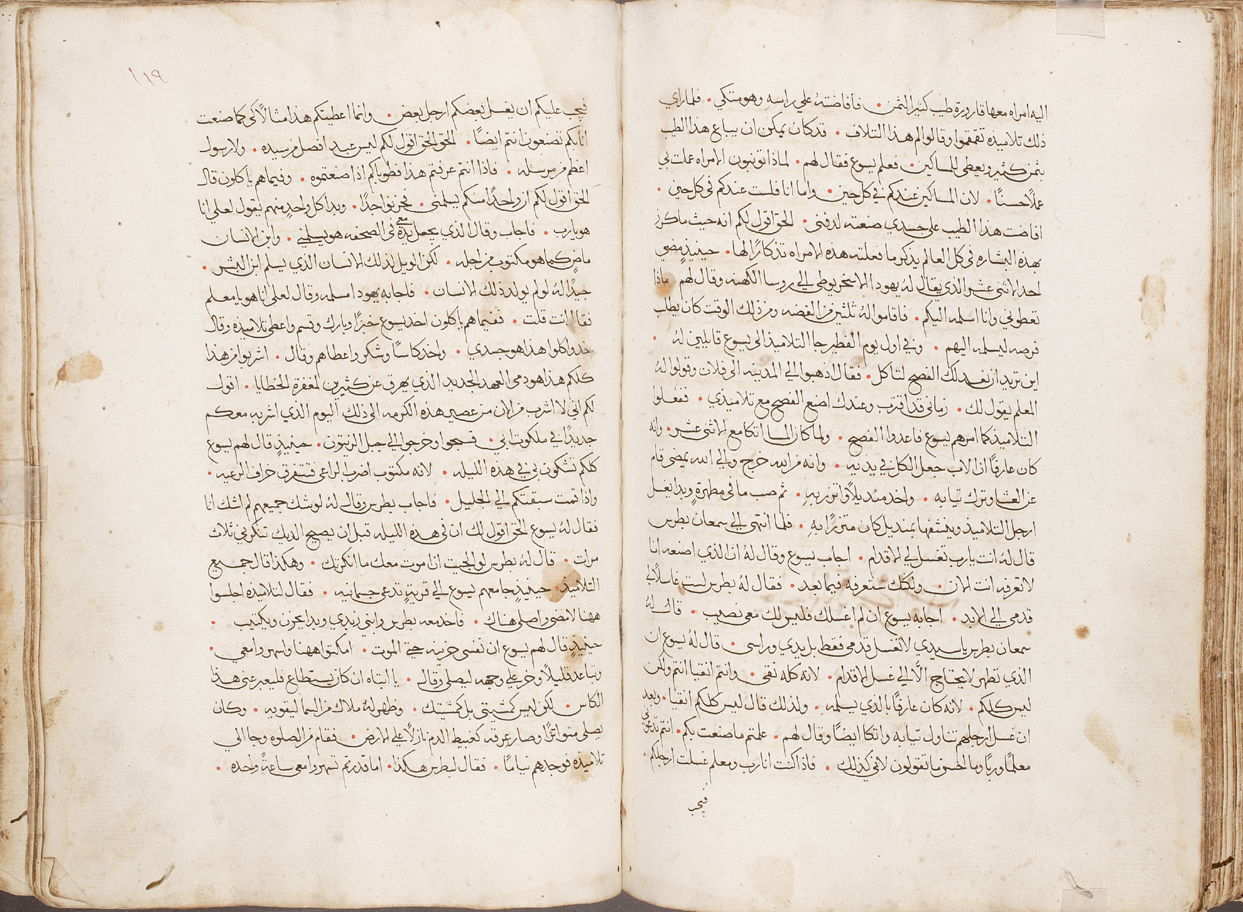 اليه امراه معها قارورة طيب كثير الثمن • فافاضته على راسه وهو متكي • فلما راي
ذلك تلاميذه تقمقموا وقالوا لم هذا التلاف • قد كان يمكن ان يباع هذا الطيب
بثمن كثير ويعطي للمساكين • فعلم يسوع فقال لهم • لماذا توتبون الامراه عملت بي
عملاً حسنًا • لان المساكين عندكم في كل حين • واما انا فلست عندكم في كل حين •
افاضت هذا الطيب على جسدي صنعته لدفني • الحق اقول لكم انه حيث ما كرز
بهذه البشاره في كل العالم يذكر ما فعلته هذه الامراه تذكارًا لها • حينيذٍ مضي
احد الاثني عشر الذي يقال له يهودا الاسخريوطي الي روسا الكهنه وقال لهم ماذا
تعطوني وانا اسلمه اليكم • فاقاموا له ثلثين من الفضه ومن ذلك الوقت كان يطلب
فرصه ليسلمه اليهم • وفي اول يوم الفطير جا التلاميذ الي يسوع قايلين له •
اين تريد ان نعد لك الفصح لتاكل • فقال اذهبوا الي المدينه الي فلان وقولوا له
المعلم يقول لك • زماني قد اقترب وعندك اصنع الفصح مع تلاميذي • ففعلوا
التلاميذ كما امرهم يسوع فاعدوا الفصح • ولما كان المسا اتكا مع الاثني عشر • وانه
كان عارفًا ان الاب جعل الكل في يديه • وانه من الله خرج والي الله يمضي قام
عن العشا وترك ثيابه • واخذ منديلاً واتزر به • ثم صب ما في مطهرةٍ وبدا بغسل
ارجل التلاميذ وينشفها بمنديل كان متزرًا به • فلما انتهى الي سمعان بطرس
قال له انت يارب تغسل لي الاقدام • اجاب يسوع وقال له ان الذي اصنعه انا
لا تعرفه انت الان • ولكنك ستعرفه فيما بعد • فقال له بطرس لست غاسلاً لي
قدمي الي الابد • اجابه يسوع ان لم اغسلك فليس لك معي نصيب • قال له
سمعان بطرس يا سيدي لا تغسل قدمي فقط بل يدي وراسي • قال له يسوع ان
الذي تطهر لا يحتاج الا الي غسل الاقدام • لانه كله نقي • وانتم انقيا انتم ولكن
ليس كلكم • لانه كان عارفًا بالذي يسلمه • ولذلك قال ليس كلكم انقيا • وبعد
ان غسل ارجلهم تناول ثيابه واتكا ايضًا وقال لهم • علمتم ما صنعت بكم • انتم تدعوني
معلمًا وربًا وما احسن ما تقولون لاني كذلك • فاذا كنت انا رب ومعلم غسلت ارجلكم •
فيجب
١١٩
فيجب عليكم ان يغسل بعضكم ارجل بعض • وانما اعطيتكم هذا مثالاً لكي كما صنعت
انا بكم تصنعون انتم ايضًا • الحق الحق اقول لكم ليس عبد افضل من سيده • ولا رسول
اعظم من مرسله • فاذا انتم عرفتم هذا فطوباكم اذا صنعتموه • وفيما هم ياكلون قال
الحق اقول لكم ان واحدًا منكم يسلمني • فحزنوا جدًا • وبدا كل واحدٍ منهم يقول لعلي انا
هو يارب • فاجاب وقال الذي يجعل يده معي في الصحفه هو يسلمني • وابن الانسان
ماضٍ كما هو مكتوب من اجله • لكن الويل لذلك الانسان الذي يسلم ابن البشر •
جيدًا له لو لم يولد ذلك الانسان • فاجابه يهودا مسلمه وقال لعلي انا هو يا معلم
فقال انت قلت • وفيما هم ياكلون اخذ يسوع خبزًا وبارك وقسم واعطى تلاميذه وقال
خذوا كلوا هذا هو جسدي • واخذ كاسًا وشكر واعطاهم وقال • اشربوا من هذا
كلكم هذا هو دمي العهد الجديد الذي يهرق عن كثيرين لمغفرة الخطايا • اقول
لكم اني لا اشرب من الان من عصير هذه الكرمه الي ذلك اليوم الذي اشربه معكم
جديدًا في ملكوت ابي • فسبحوا وخرجوا الي جبل الزيتون • حينيذٍ قال لهم يسوع
كلكم تشكون بي في هذه الليله • لانه مكتوب اضرب الراعي فتتفرق خراف الرعيه •
واذا قمت سبقتكم الي الجليل • فاجاب بطرس وقال له لو شك جميعهم لم اشك انا
فقال له يسوع الحق اقول لك ان في هذه الليله قبل ان يصيح الديك تنكرني ثلاث
مرات • قال له بطرس لو الجيت ان اموت معك ما انكرتك • وهكذا قال جميع
التلاميذ • حينيذٍ جا معهم يسوع الي قريةٍ تدعى جسمانيه • فقال لتلاميذه اجلسوا
ههنا لامضي واصلي هناك • فاخذ معه بطرس وابني زبدي وبدا يحزن ويكتيب •
حينيذٍ قال لهم يسوع ان نفسي حزينه حتي الموت • امكثوا ههنا واسهروا معي •
وتباعد قليلاً وخر علي وجهه ليصلي وقال • يا ابتاه ان كان يستطاع فليعبر عني هذا
الكاس • لكن ليس كمشيتي بل كمشيتك • وظهر له ملاك من السما ليقويه • وكان
يصلي متواترًا وصار عرقه كعبيط الدم نازلاً على الارض • فقام من الصلوه وجا الي
تلاميذه فوجدهم نيامًا • فقال لبطرس هكذا • اما قدرتم تسهروا معي ساعةً واحده •